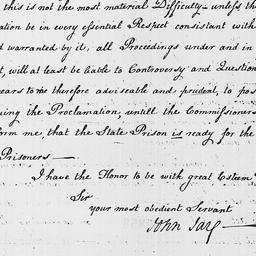 this is not the most material Difficulty – unless th
ation be in every essential Respect consistent with
d warranted by it, all Proceedings under and in
t, will at least be liable to Controversy and Question
ears to me therefore adviseable and prudent, to pos
uing the Proclamation, untill the Commissioners
form me, that the State Prison is ready for the
Prisoners —
I have the Honor to be with great Esteem
Sir
your most obedient Servant
John Jay —